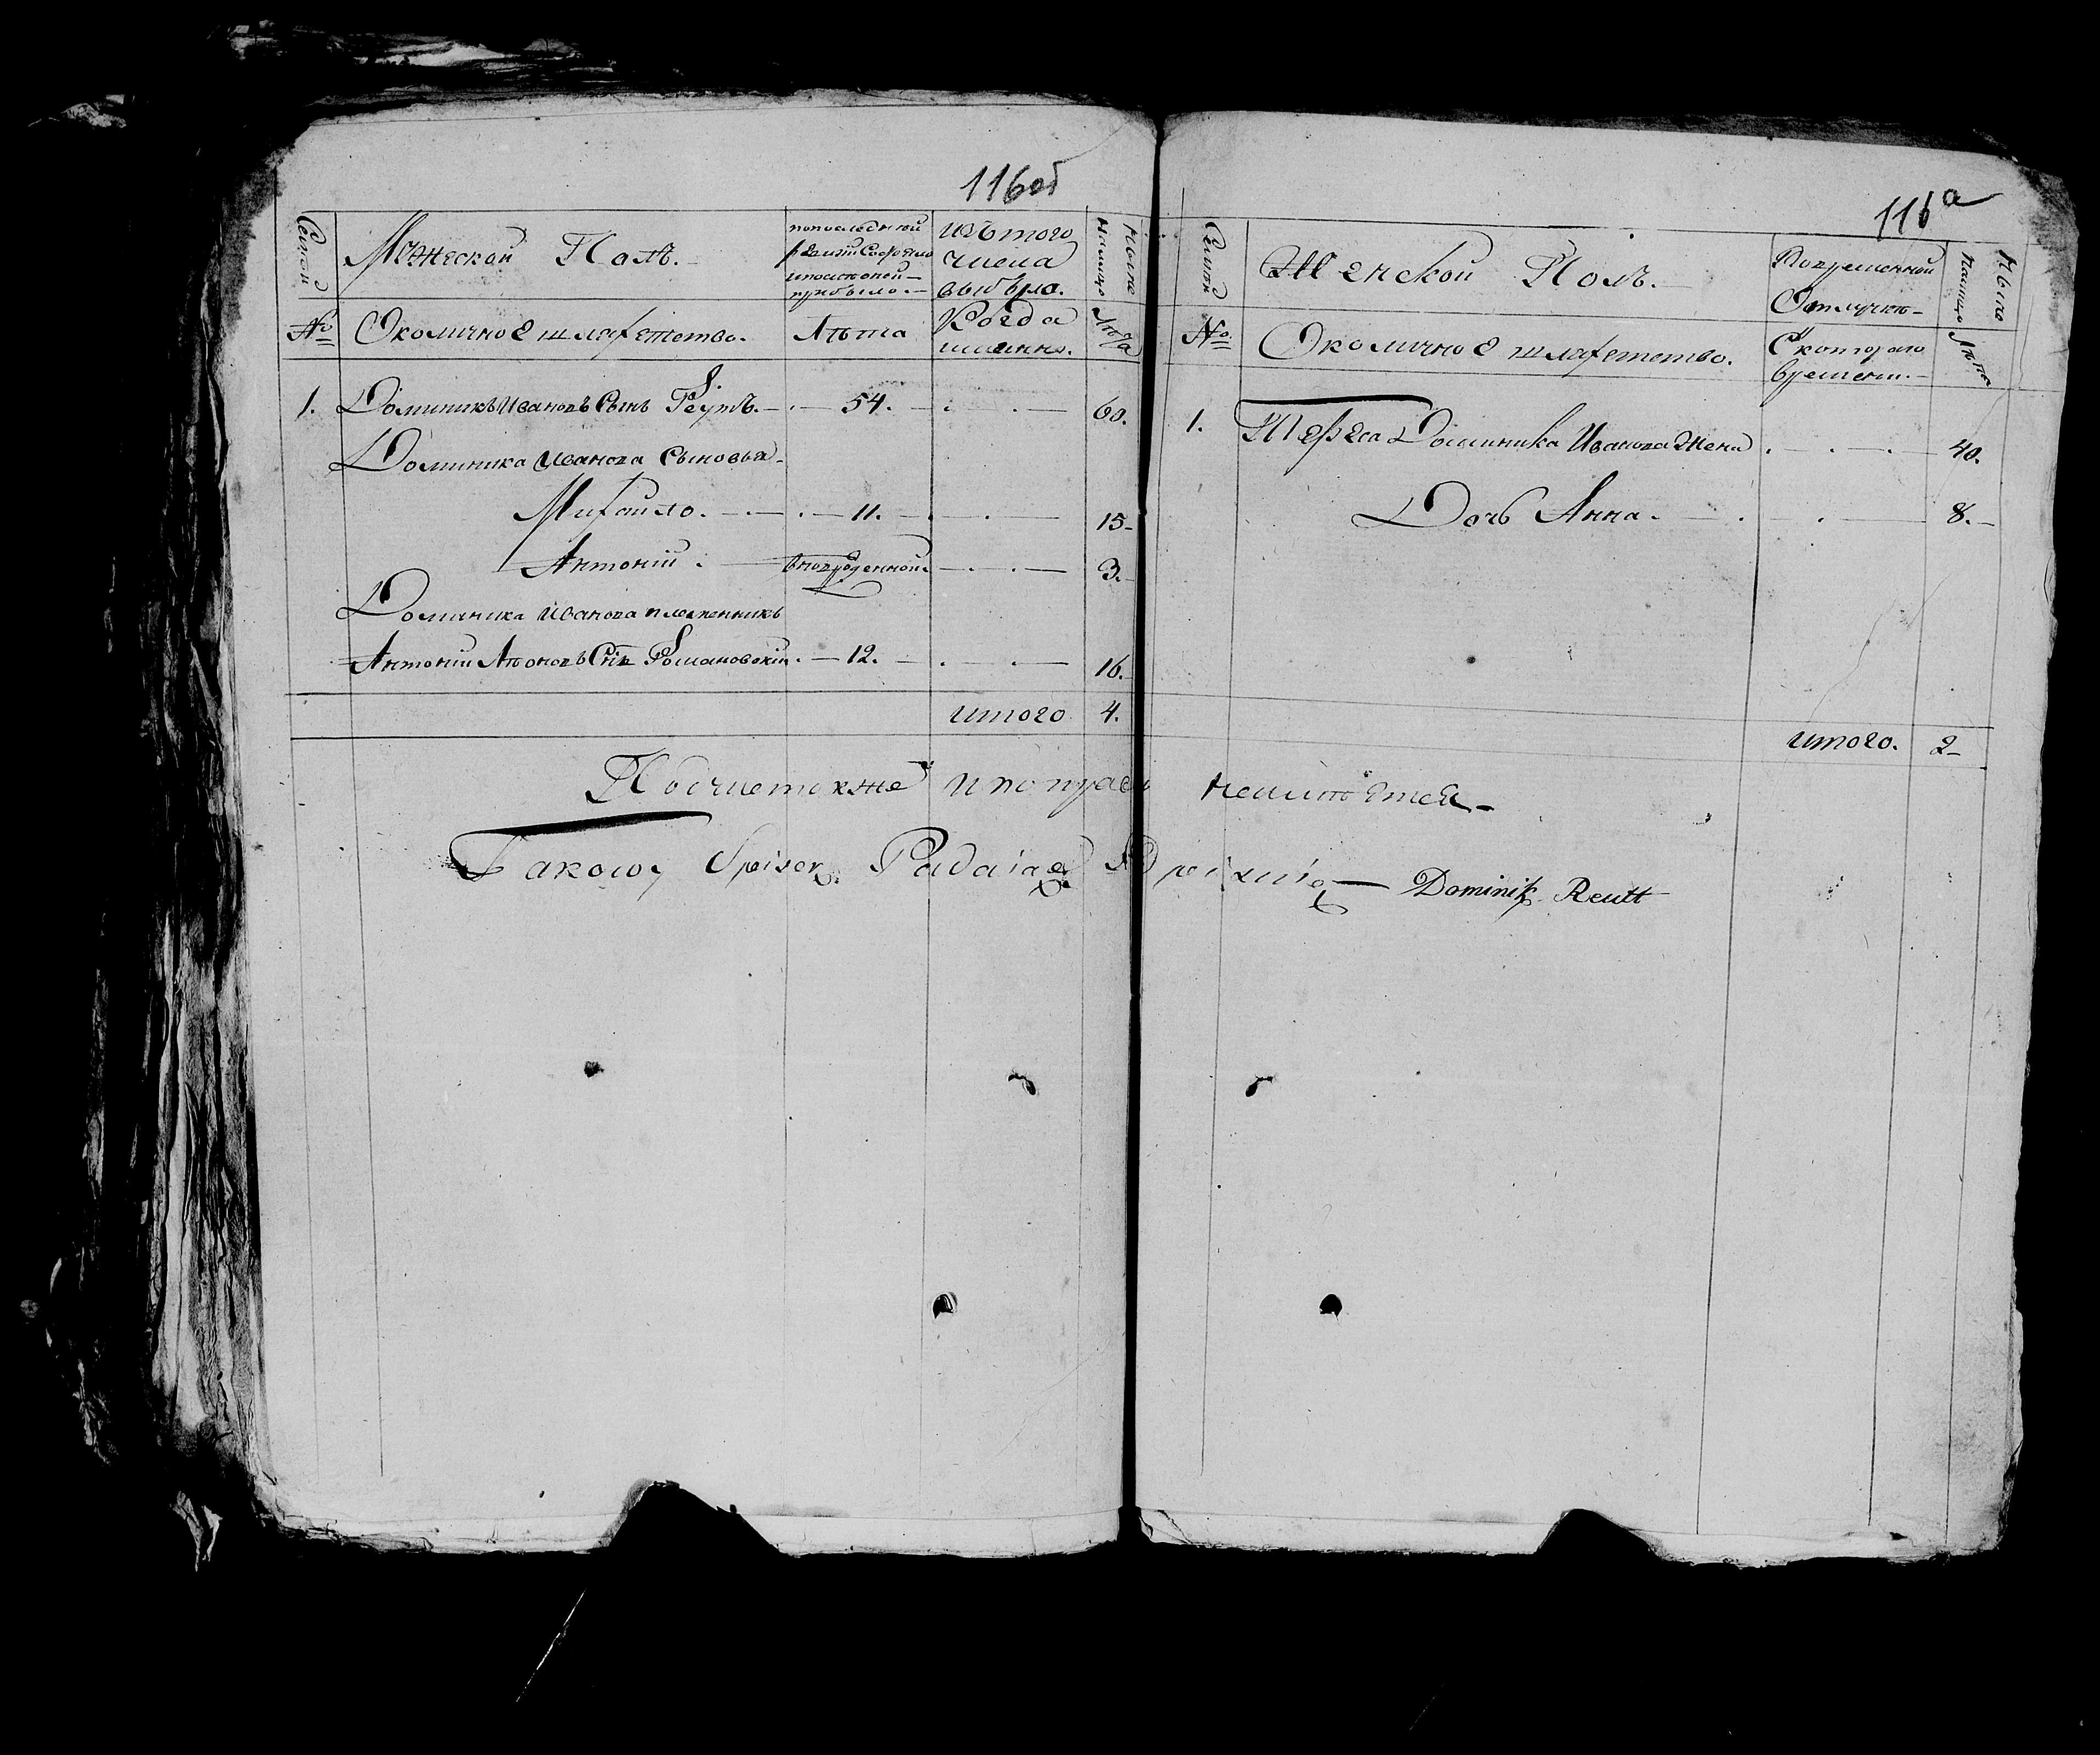 116об
Семей
Мужеской Полъ.
по последней
ревизии состояло
и после оной
прибыло.
изъ того
числа
выбыло.
Ныне
налицо
№
Околичное шляхетство.
Лѣта
Когда
именно.
Лѣта
1. Доминикъ Ивановъ Сынъ Реутъ. 54. 60.
Доминика Иванова Сыновья
Михайло. 11. 15
Антоній. новорожденной 3.
Доминика Иванова племенникъ
Антоній Снъ Романовскій. 12. 16.
итого 4.
116а
Семей
Женской Полъ.
Во временной
Отлучкѣ
Ныне
налицо
№
Околичное шляхетство.
С котораго
времени.
Лѣта
1. Тереса Доминика Иванова Жена 40.
Дочь Анна. 8.
итого. 2
Подчистокже и поправ неимѣется
Takowy Spisok Podaiąc Dominik Reutt